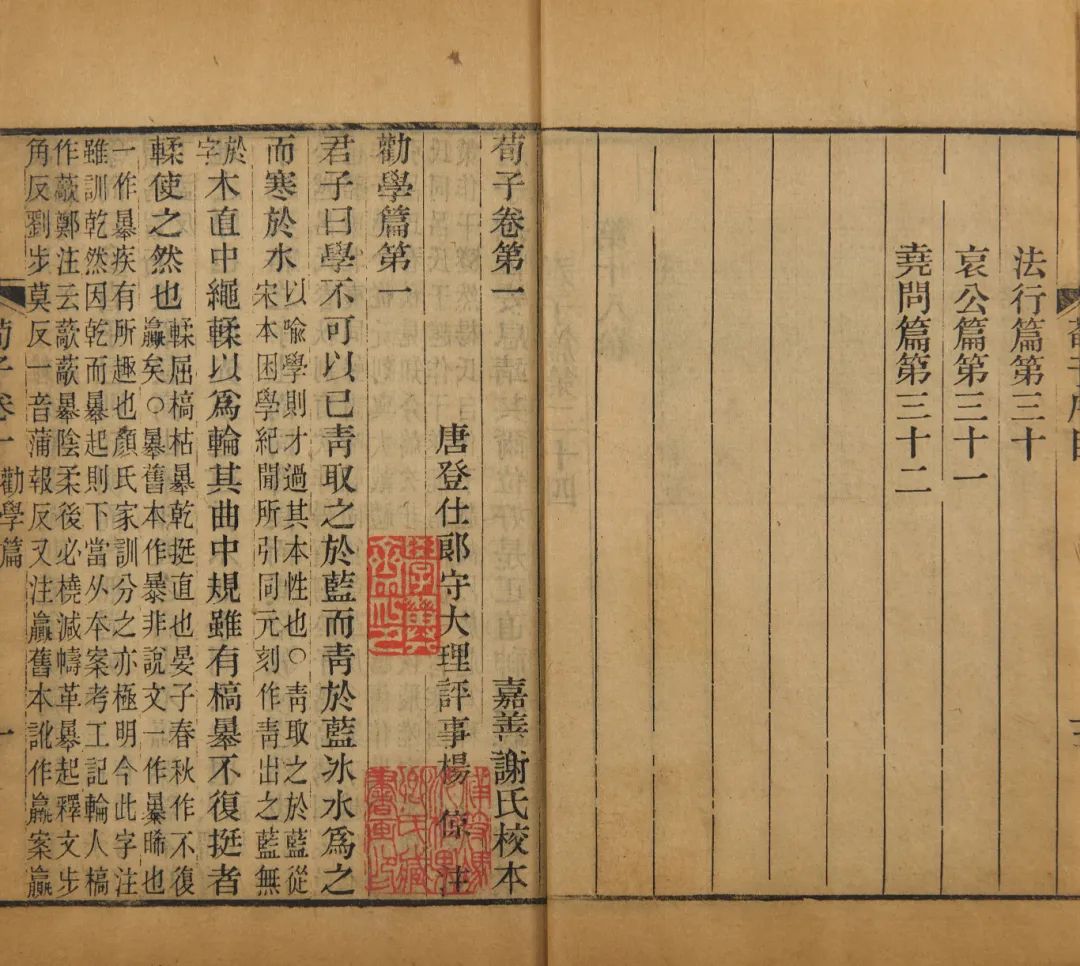 法行篇第三十
哀公篇第三十一
堯問篇第三十二
荀子卷第一　嘉善謝氏校本
唐登仕郎守大理評事楊　倞　注
勸學篇第一
君子曰學不可以已靑取之於藍而靑於藍冰水爲之
而寒於水以喻學則才過其本性也○靑取之於藍從宋本困學紀聞所引同元刻作靑出之藍無
於字木直中繩輮以爲輪其曲中規雖有槁暴不復挺者
輮使之然也輮屈槁枯暴乾挺直也晏子春秋作不復贏矣○暴舊本作暴非說文一作㬥晞也
一作㬥疾有所趣也顏氏家訓分之亦極明今此字注
雖訓乾然因乾而暴起則下當从夲案考工記輪人槁
作藃鄭注云藃藃暴陰柔後必橈減幬革暴起釋文步
角反劉步莫反一音蒲報反又注贏舊本訛作羸案贏
荀子卷一　勸學篇　一